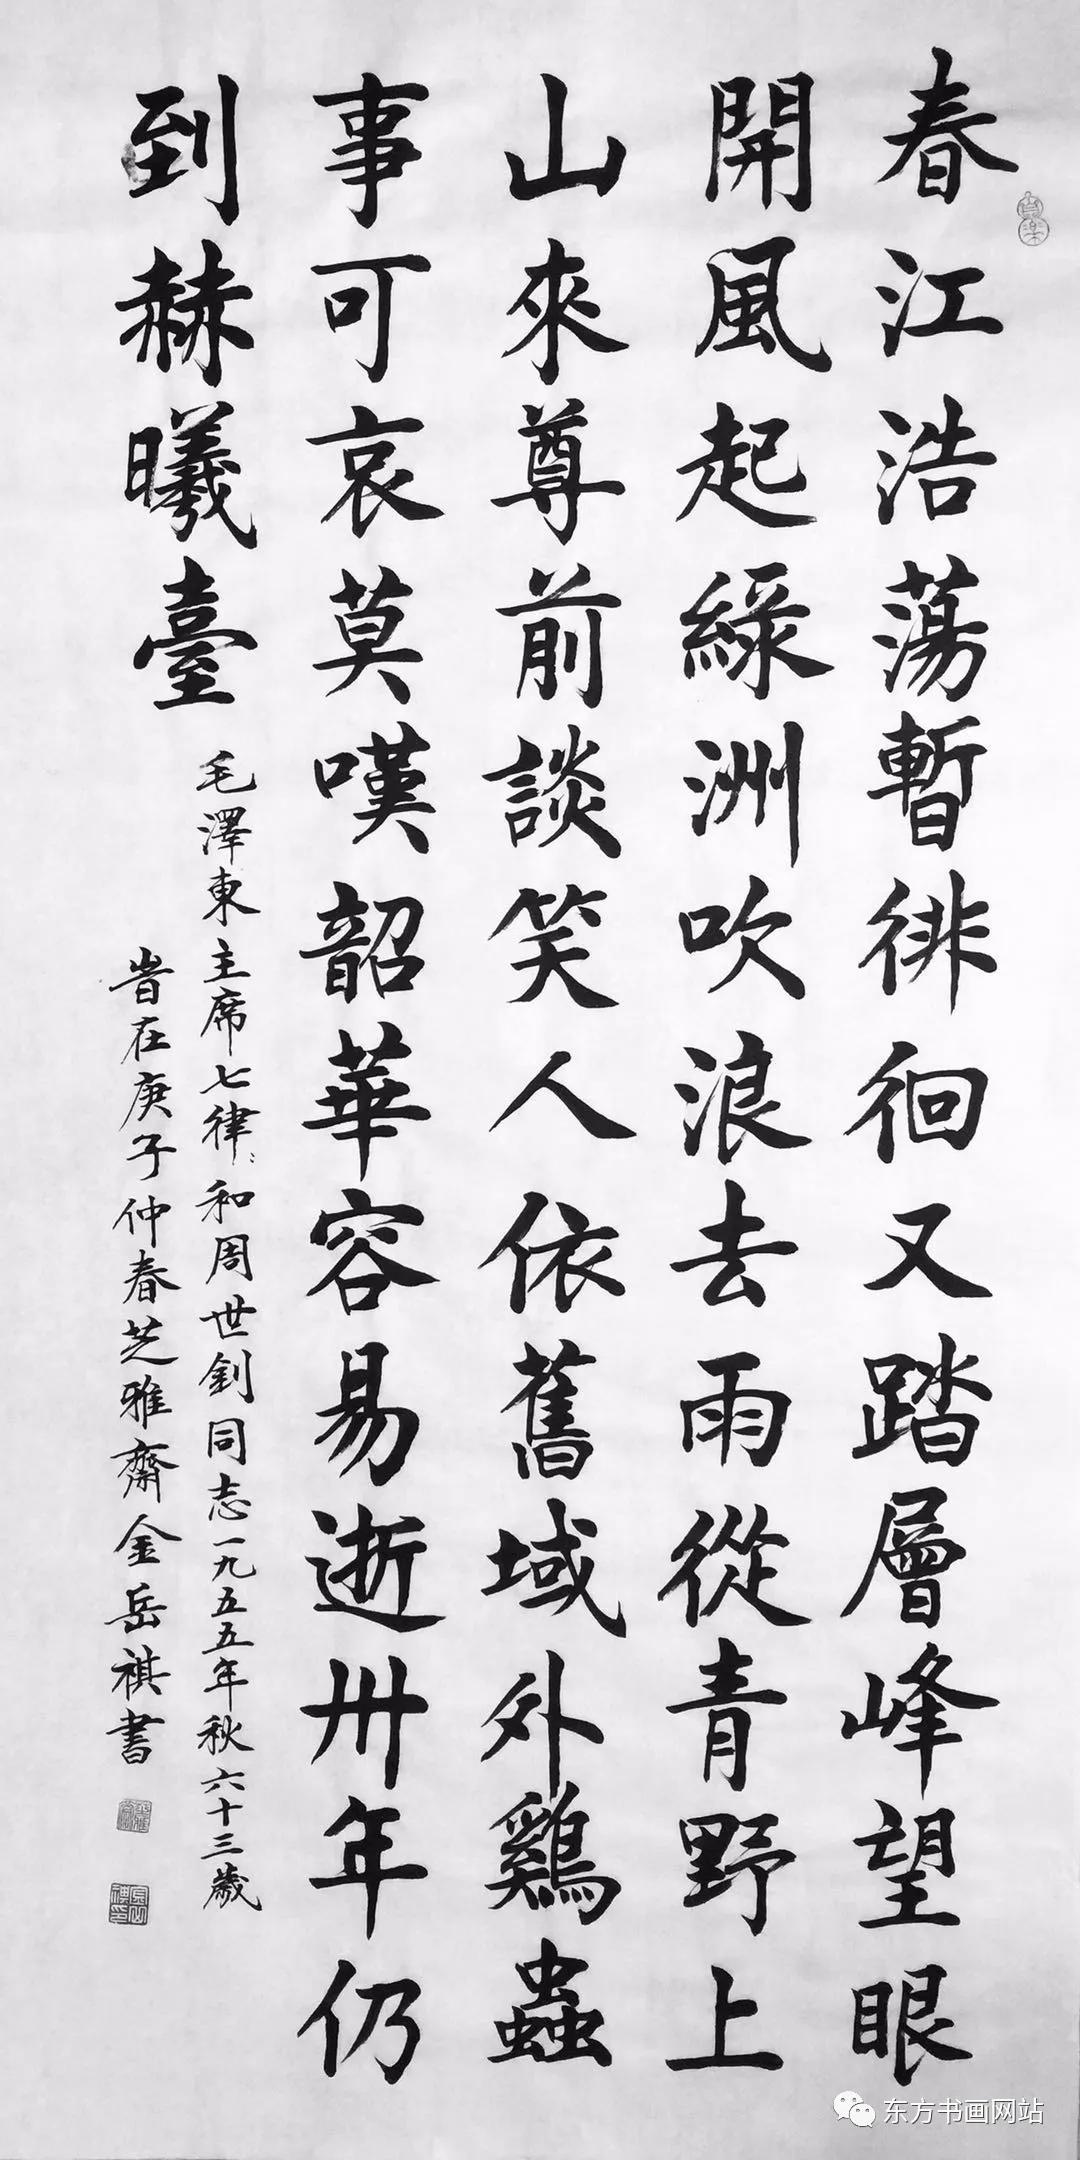 春江浩蕩暫徘徊又踏層峰望眼
開風起綠洲吹浪去雨從青野上
山來尊前談笑人依舊域外鷄蟲
事可哀莫嘆韶華容易逝卅年仍
到赫曦臺
毛澤東主席七律:和周世釗同志一九五五年秋六十三歲
旹在庚子仲春芝雅齋金岳祺書
东方书画网站